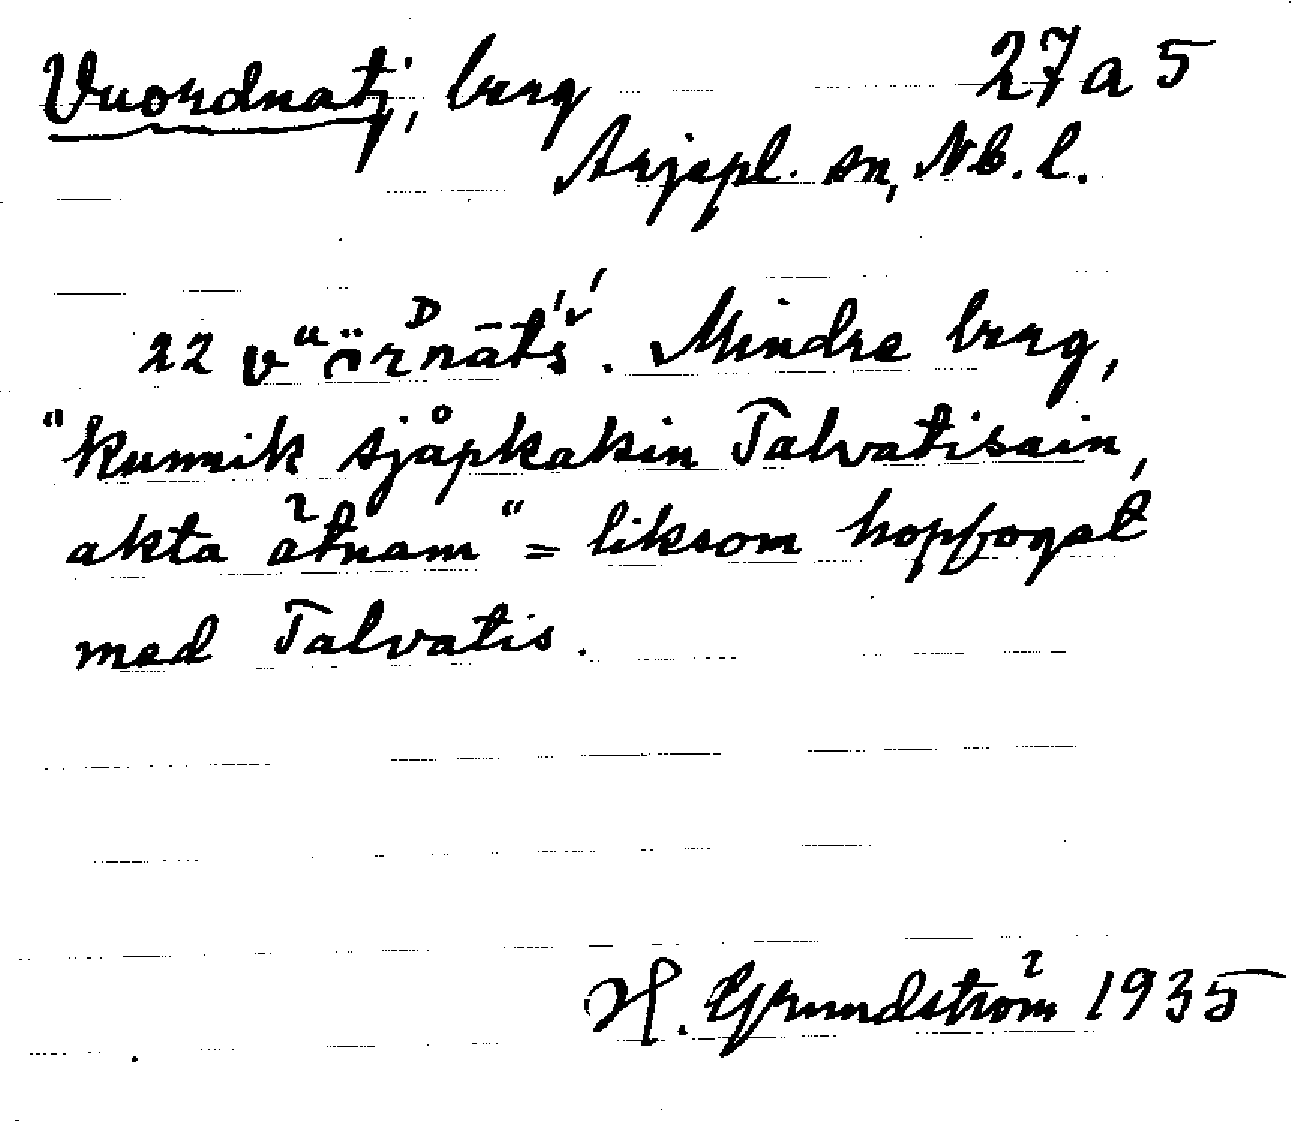 Vuordnatj, berg 27a5
Arjepl. sn, Nb. l.
22 vᵘörᴰnāt́š́. Mindre berg,
"kunnik sjåpkakin Talvatisain,
akta ätnam" = liksom hopfogat
med Talvatis.
H. Grundström 1935